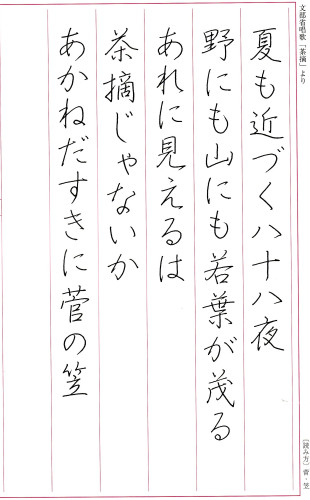 文部省唱歌「茶摘」より
夏も近づく八十八夜
野にも山にも若葉が茂る
あれに見えるは
茶摘じゃないか
あかねだすきに菅の笠
(読み方) 菅・笠